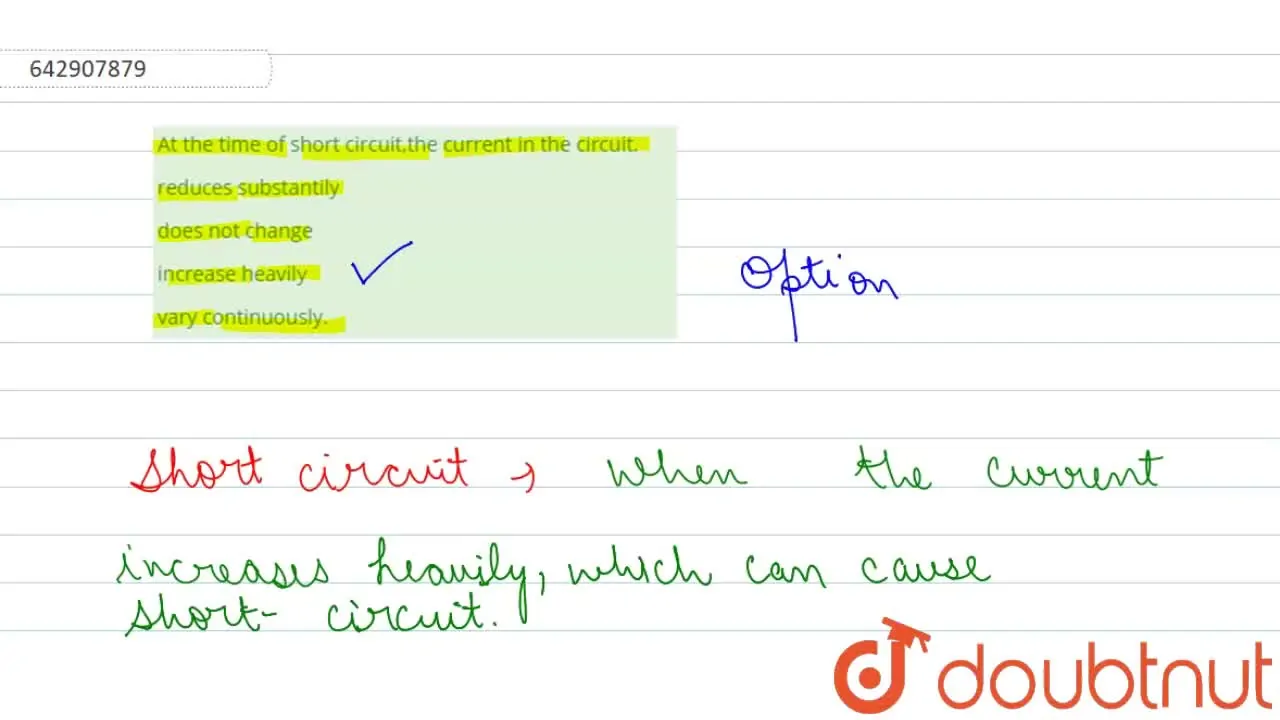 642907879
At the time of short circuit,the current in the circuit.
reduces substantily
does not change
increase heavily
vary continuously.
Option
Short circuit → When the current
increases heavily, which can cause
short- circuit.
doubtnut